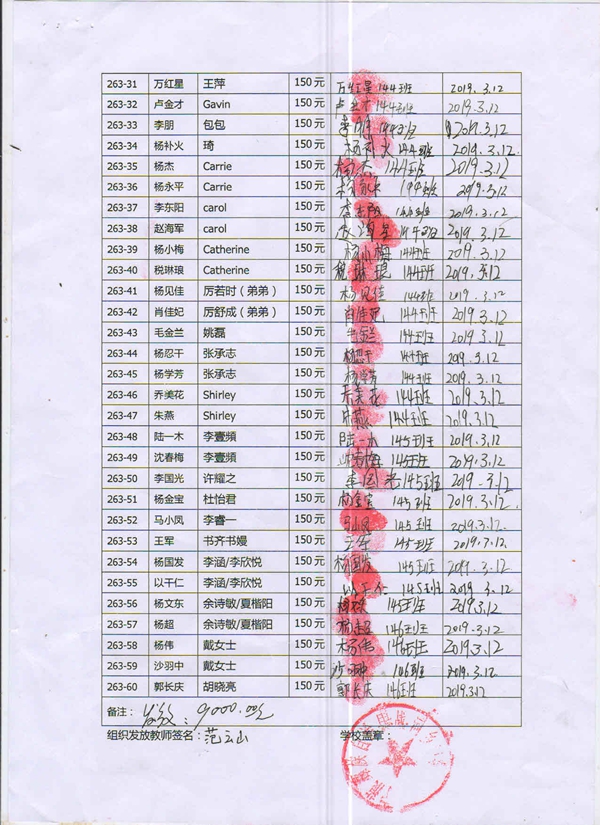 263-31 万红星 王萍 150元 万红星 144班 2019.3.12
263-32 卢金才 Gavin 150元 卢金才 144班 2019.3.12
263-33 李朋 包包 150元 李朋 144班 2019.3.12
263-34 杨补火 琦 150元 杨补火 144班 2019.3.12
263-35 杨杰 Carrie 150元 杨杰 144班 2019.3.12
263-36 杨永平 Carrie 150元 杨永平 144班 2019.3.12
263-37 李东阳 carol 150元 李东阳 144班 2019.3.12
263-38 赵海军 carol 150元 144班 2019.3.12
263-39 杨小梅 Catherine 150元 杨小梅 144班 2019.3.12
263-40 税琳琅 Catherine 150元 税琳琅 144班 2019.3.12
263-41 杨见佳 厉若时（弟弟） 150元 杨见佳 144班 2019.3.12
263-42 肖佳妃 厉舒成（弟弟） 150元 肖佳妃 144班 2019.3.12
263-43 毛金兰 姚磊 150元 毛金兰 144班 2019.3.12
263-44 杨忍干 张承志 150元 杨忍干 144班 2019.3.12
263-45 杨学芳 张承志 150元 杨学芳 144班 2019.3.12
263-46 乔美花 Shirley 150元 乔美花 144班 2019.3.12
263-47 朱燕 Shirley 150元 朱燕 144班 2019.3.12
263-48 陆一木 李壹頻 150元 陆一木 145班 2019.3.12
263-49 沈春梅 李壹頻 150元 沈春梅 145班 2019.3.12
263-50 李国光 许耀之 150元 李国光 145班 2019.3.12
263-51 杨金宝 杜怡君 150元 杨金宝 145班 2019.3.12
263-52 马小凤 李睿一 150元 马小凤 145班 2019.3.12
263-53 王军 书齐书嫚 150元 王军 145班 2019.3.12
263-54 杨国发 李涵/李欣悦 150元 杨国发 145班 2019.3.12
263-55 以干仁 李涵/李欣悦 150元 以干仁 145班 2019.3.12
263-56 杨文东 余诗敏/夏楷阳 150元 145班 2019.3.12
263-57 杨超 余诗敏/夏楷阳 150元 杨超 146班 2019.3.12
263-58 杨伟 戴女士 150元 杨伟 146班 2019.3.12
263-59 沙羽中 戴女士 150元 沙羽中 146班 2019.3.12
263-60 郭长庆 胡晓亮 150元 郭长庆 146班 2019.3.12
备注： 发放：9000.00元
组织发放教师签名：范云山 学校盖章：